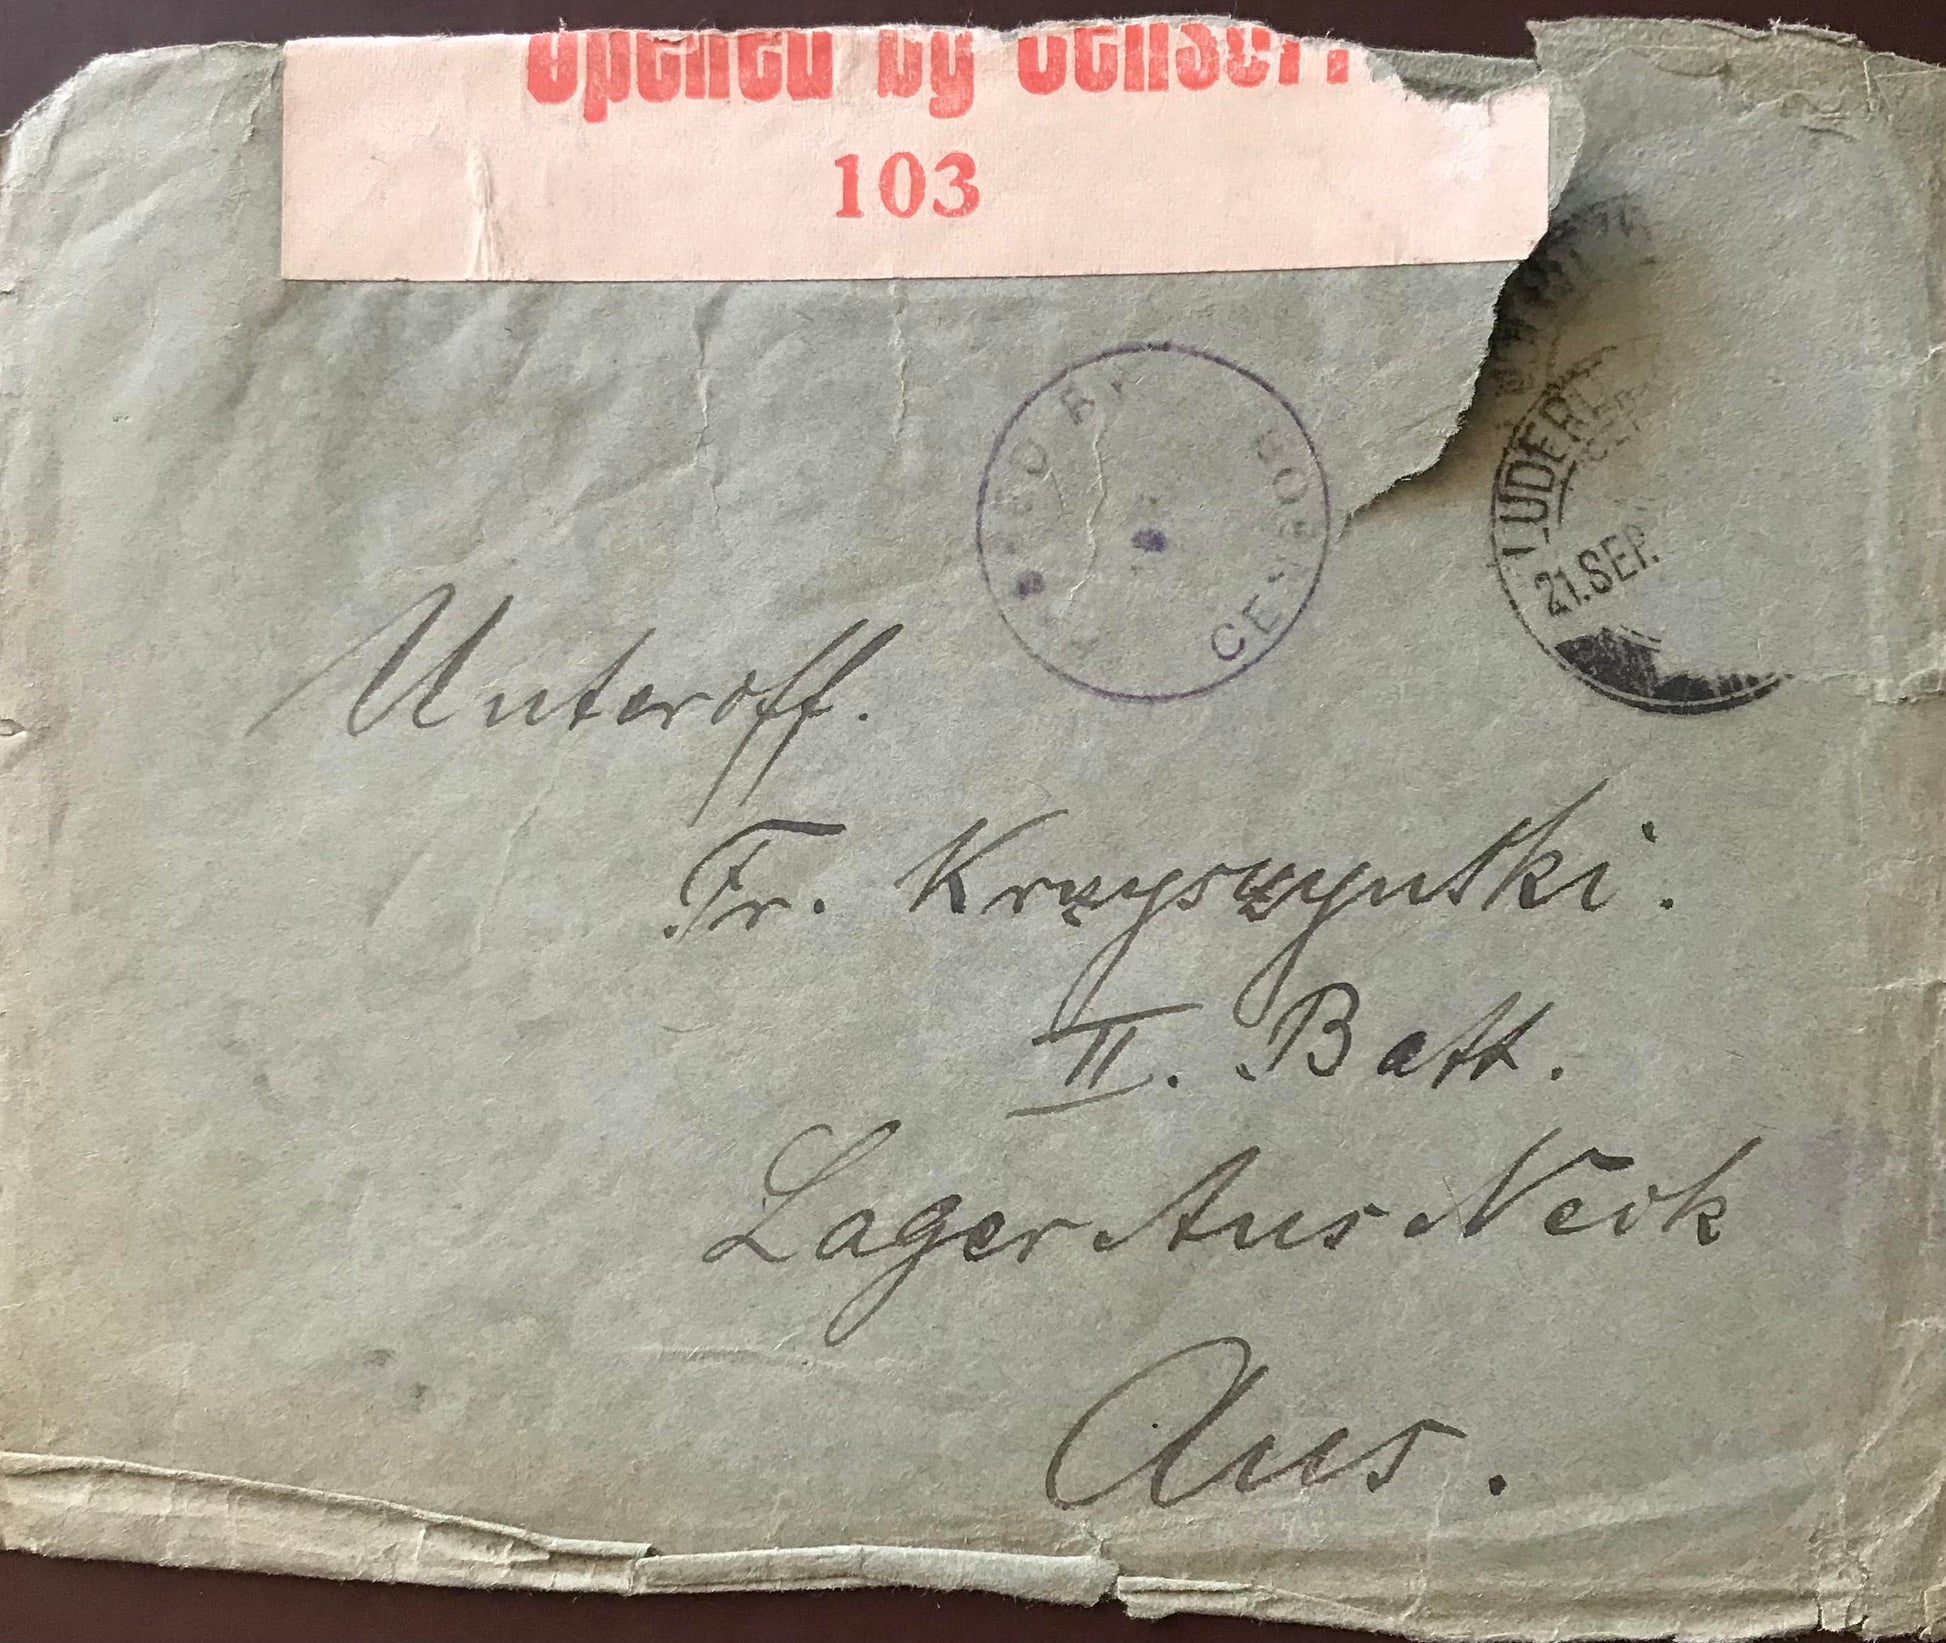 Opened by Censor.
103
PASSED BY
CENSOR
LUDERI
21.SEP.
Unteroff.
Fr. Krzyszynski.
II. Batt.
Lager Aus Neck
Aus.